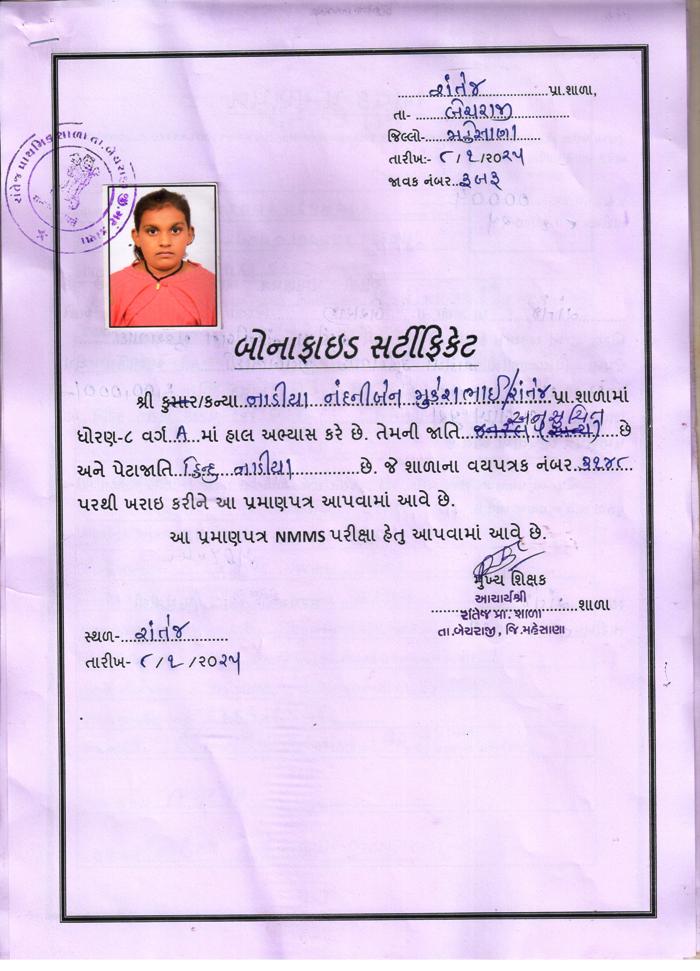 રાંતેજ પ્રા.શાળા,
તા- બેચરાજી
જિલ્લો- મહેસાણા
તારીખ:- ૮/૧/૨૦૨૫
જાવક નંબર. ૩૬૩
રાંતેજ પ્રાથમિક શાળા તા.બેચરાજી જી.મહેસાણા
બોનાફાઇડ સર્ટીફિકેટ
શ્રી કુમાર/કન્યા નાડીયા નંદનીબેન મુકેશભાઈ રાંતેજ પ્રા.શાળામાં
અનુસુચિત
ધોરણ-૮ વર્ગ A માં હાલ અભ્યાસ કરે છે. તેમની જાતિ જનરલ (અન્ય) છે
અને પેટાજાતિ હિન્દુ નાડીયા છે. જે શાળાના વયપત્રક નંબર ૩૧૪૮
પરથી ખરાઇ કરીને આ પ્રમાણપત્ર આપવામાં આવે છે.
આ પ્રમાણપત્ર NMMS પરીક્ષા હેતુ આપવામાં આવે છે.
મુખ્ય શિક્ષક
આચાર્યશ્રી
રાંતેજ પ્રા. શાળા શાળા
તા.બેચરાજી, જિ.મહેસાણા
સ્થળ- રાંતેજ
તારીખ- ૮/૧/૨૦૨૫